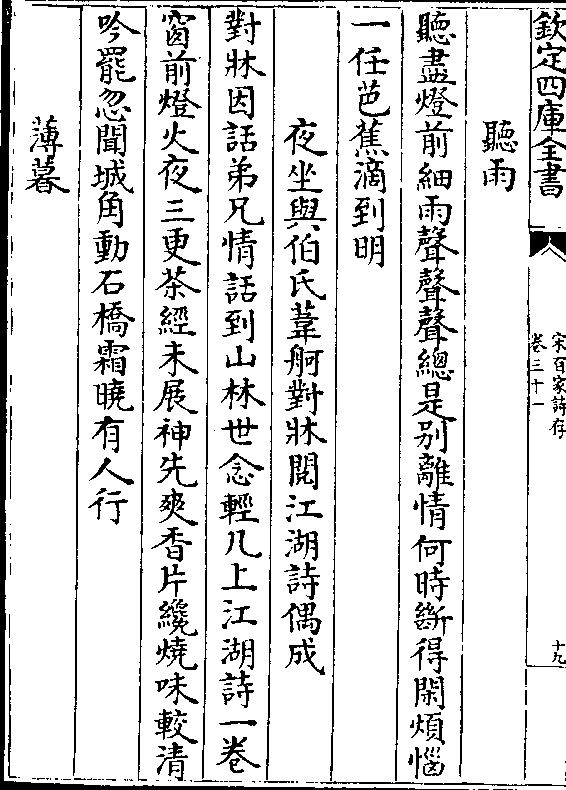 欽定四庫全書
宋百家詩存
卷三十一
十九
聽雨
聽盡燈前細雨聲聲聲總是別離情何時斷得閑煩惱
一任芭蕉滴到明
夜坐與伯氏葦舸對牀閱江湖詩偶成
對牀因話弟兄情話到山林世念輕几上江湖詩一卷
窗前燈火夜三更茶經未展神先爽香片纔燒味較清
吟罷忽聞城角動石橋霜曉有人行
薄暮